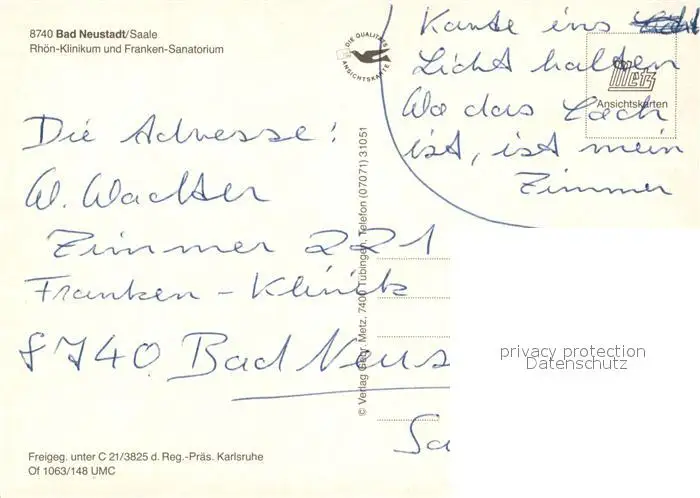 8740 Bad Neustadt/Saale
Rhön-Klinikum und Franken-Sanatorium
DIE QUALITÄTS
ANSICHTSKARTE
Kante ins
Licht halten
Wo das Loch
ist, ist mein
Zimmer
Metz
Ansichtskarten
Die Adresse:
W. Wachter
Zimmer 221
Franken-Klinik
8740 Bad Neus
Sa
© Verlag Gebr. Metz, 7400 Tübingen, Telefon (07071) 31051
privacy protection
Datenschutz
Freigeg. unter C 21/3825 d. Reg.-Präs. Karlsruhe
Of 1063/148 UMC